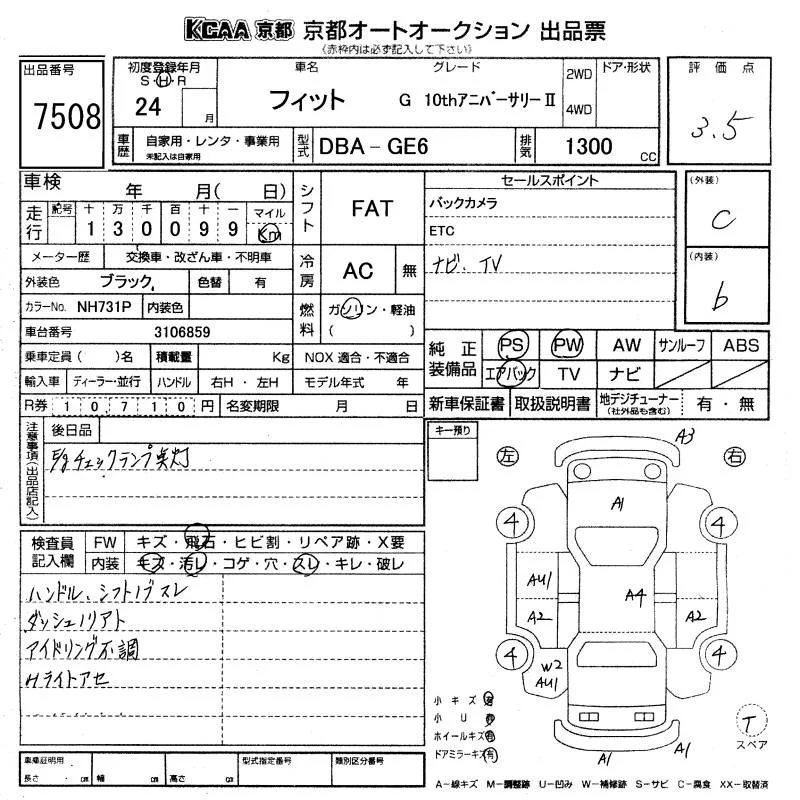 KCAA 京都 京都オートオークション 出品票
《赤枠内は必ず記入して下さい》
出品番号
7508
初度登録年月
S・H・R
24 月
車名
フィット
グレード
G 10thアニバーサリーⅡ
2WD
4WD
ドア・形状
評価点
3.5
車歴
自家用・レンタ・事業用
未記入は自家用
型式
DBA-GE6
排気
1300 CC
車検 年 月( 日)
走行
記号 十 万 千 百 十 一 マイル
1 3 0 0 9 9 Km
メーター歴 交換車・改ざん車・不明車
外装色 ブラック 色替 有
カラーNo. NH731P 内装色
車台番号 3106859
乗車定員( )名 積載量 Kg
輸入車 ディーラー・並行 ハンドル 右H・左H
R券 10710円 名変期限 月 日
シフト
FAT
冷房
AC 無
燃料
ガソリン・軽油
( )
NOX 適合・不適合
モデル年式 年
セールスポイント
バックカメラ
ETC
ナビ、TV
(外装)
C
(内装)
b
純正装備品
PS PW AW サンルーフ ABS
エアバック TV ナビ
新車保証書 取扱説明書 地デジチューナー
(社外品も含む)
有・無
注意事項(出品店記入)
後日品
E/gチェックランプ点灯
キー預り
検査員記入欄
FW キズ・飛石・ヒビ割・リペア跡・X要
内装 キズ・汚レ・コゲ・穴・スレ・キレ・破レ
ハンドル、シフトノブスレ
ダッシュノリアト
アイドリング不調
Hライトアセ
左 右
A3
A1
4 4
AU1
A2
A4
A2
4 4
W2
AU1
A1 A1
小キズ 有
小U 有
ホイールキズ 有
ドアミラーキズ 有
T
スペア
車庫証明用
長さ ・ cm 幅 cm 高さ cm
型式指定番号
類別区分番号
A-線キズ M-調整跡 U-凹み W-補修跡 S-サビ C-腐食 XX-取替済